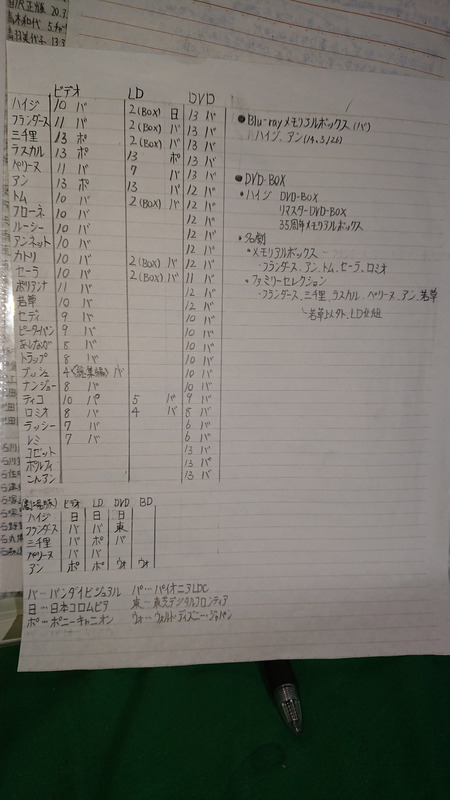 20.3.
5.
13.3
ビデオ LD DVD
ハイジ 10 バ 2(BOX) 日 13 バ
フランダース 11 バ 2(BOX) バ 13 バ
三千里 13 ポ 2(BOX) バ 13 バ
ラスカル 13 ポ 13 ポ 13 バ
ペリーヌ 11 バ 7 バ 13 バ
アン 13 ポ 13 バ 12 バ
トム 10 バ 2(BOX) バ 12 バ
フローネ 10 バ 12 バ
ルーシー 10 バ 12 バ
アンネット 10 バ 12 バ
カトリ 10 バ 2(BOX) バ 12 バ
セーラ 10 バ 2(BOX) バ 11 バ
ポリアンナ 11 バ 12 バ
若草 10 バ 12 バ
セディ 9 バ 10 バ
ピーターパン 9 バ 10 バ
あしなが 8 バ 10 バ
トラップ 8 バ 10 バ
ブッシュ 4(総集編) バ 10 バ
ナンジョー 8 バ 10 バ
ティコ 10 パ 5 バ 9 バ
ロミオ 8 バ 4 バ 8 バ
ラッシー 7 バ 6 バ
レミ 7 バ 6 バ
コゼット 13 バ
ポルフィ 13 バ
こんアン 13 バ
●Blu-rayメモリアルボックス(バ)
ハイジ、アン(14.3/26)
●DVD-BOX
・ハイジ DVD-BOX
リマスターDVD-BOX
35周年メモリアルボックス
・名劇
・メモリアルボックス
・フランダース、アン、トム、セーラ、ロミオ
・ファミリーセレクション
・フランダース、三千里、ラスカル、ペリーヌ、アン、若草
(劇場版) ビデオ LD DVD BD
ハイジ 日 日 日
フランダース バ バ 東
三千里 バ ポ バ
ペリーヌ バ バ
アン ポ ポ ウォ ウォ
バ…バンダイビジュアル パ…パイオニアLDC
日…日本コロムビア 東…東芝デジタルフロンティア
ポ…ポニーキャニオン ウォ…ウォルト・ディズニー・ジャパン